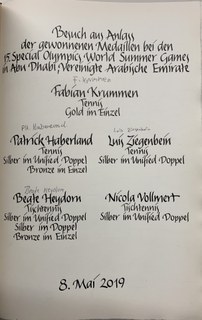 Besuch aus Anlass
der gewonnenen Medaillen bei den
15. Special Olympics World Summer Games
in Abu Dhabi, Vereinigte Arabische Emirate
F. Krummen
Fabian Krummen
Tennis
Gold im Einzel
Patrick Haberland
Tennis
Silber im Unified Doppel
Bronze im Einzel
Luis Ziegenbein
Tennis
Silber im Unified Doppel
Beate Heydorn
Tischtennis
Silber im Unified Doppel
Silber im Doppel
Bronze im Einzel
Nicola Vollmert
Tischtennis
Silber im Unified Doppel
8. Mai 2019